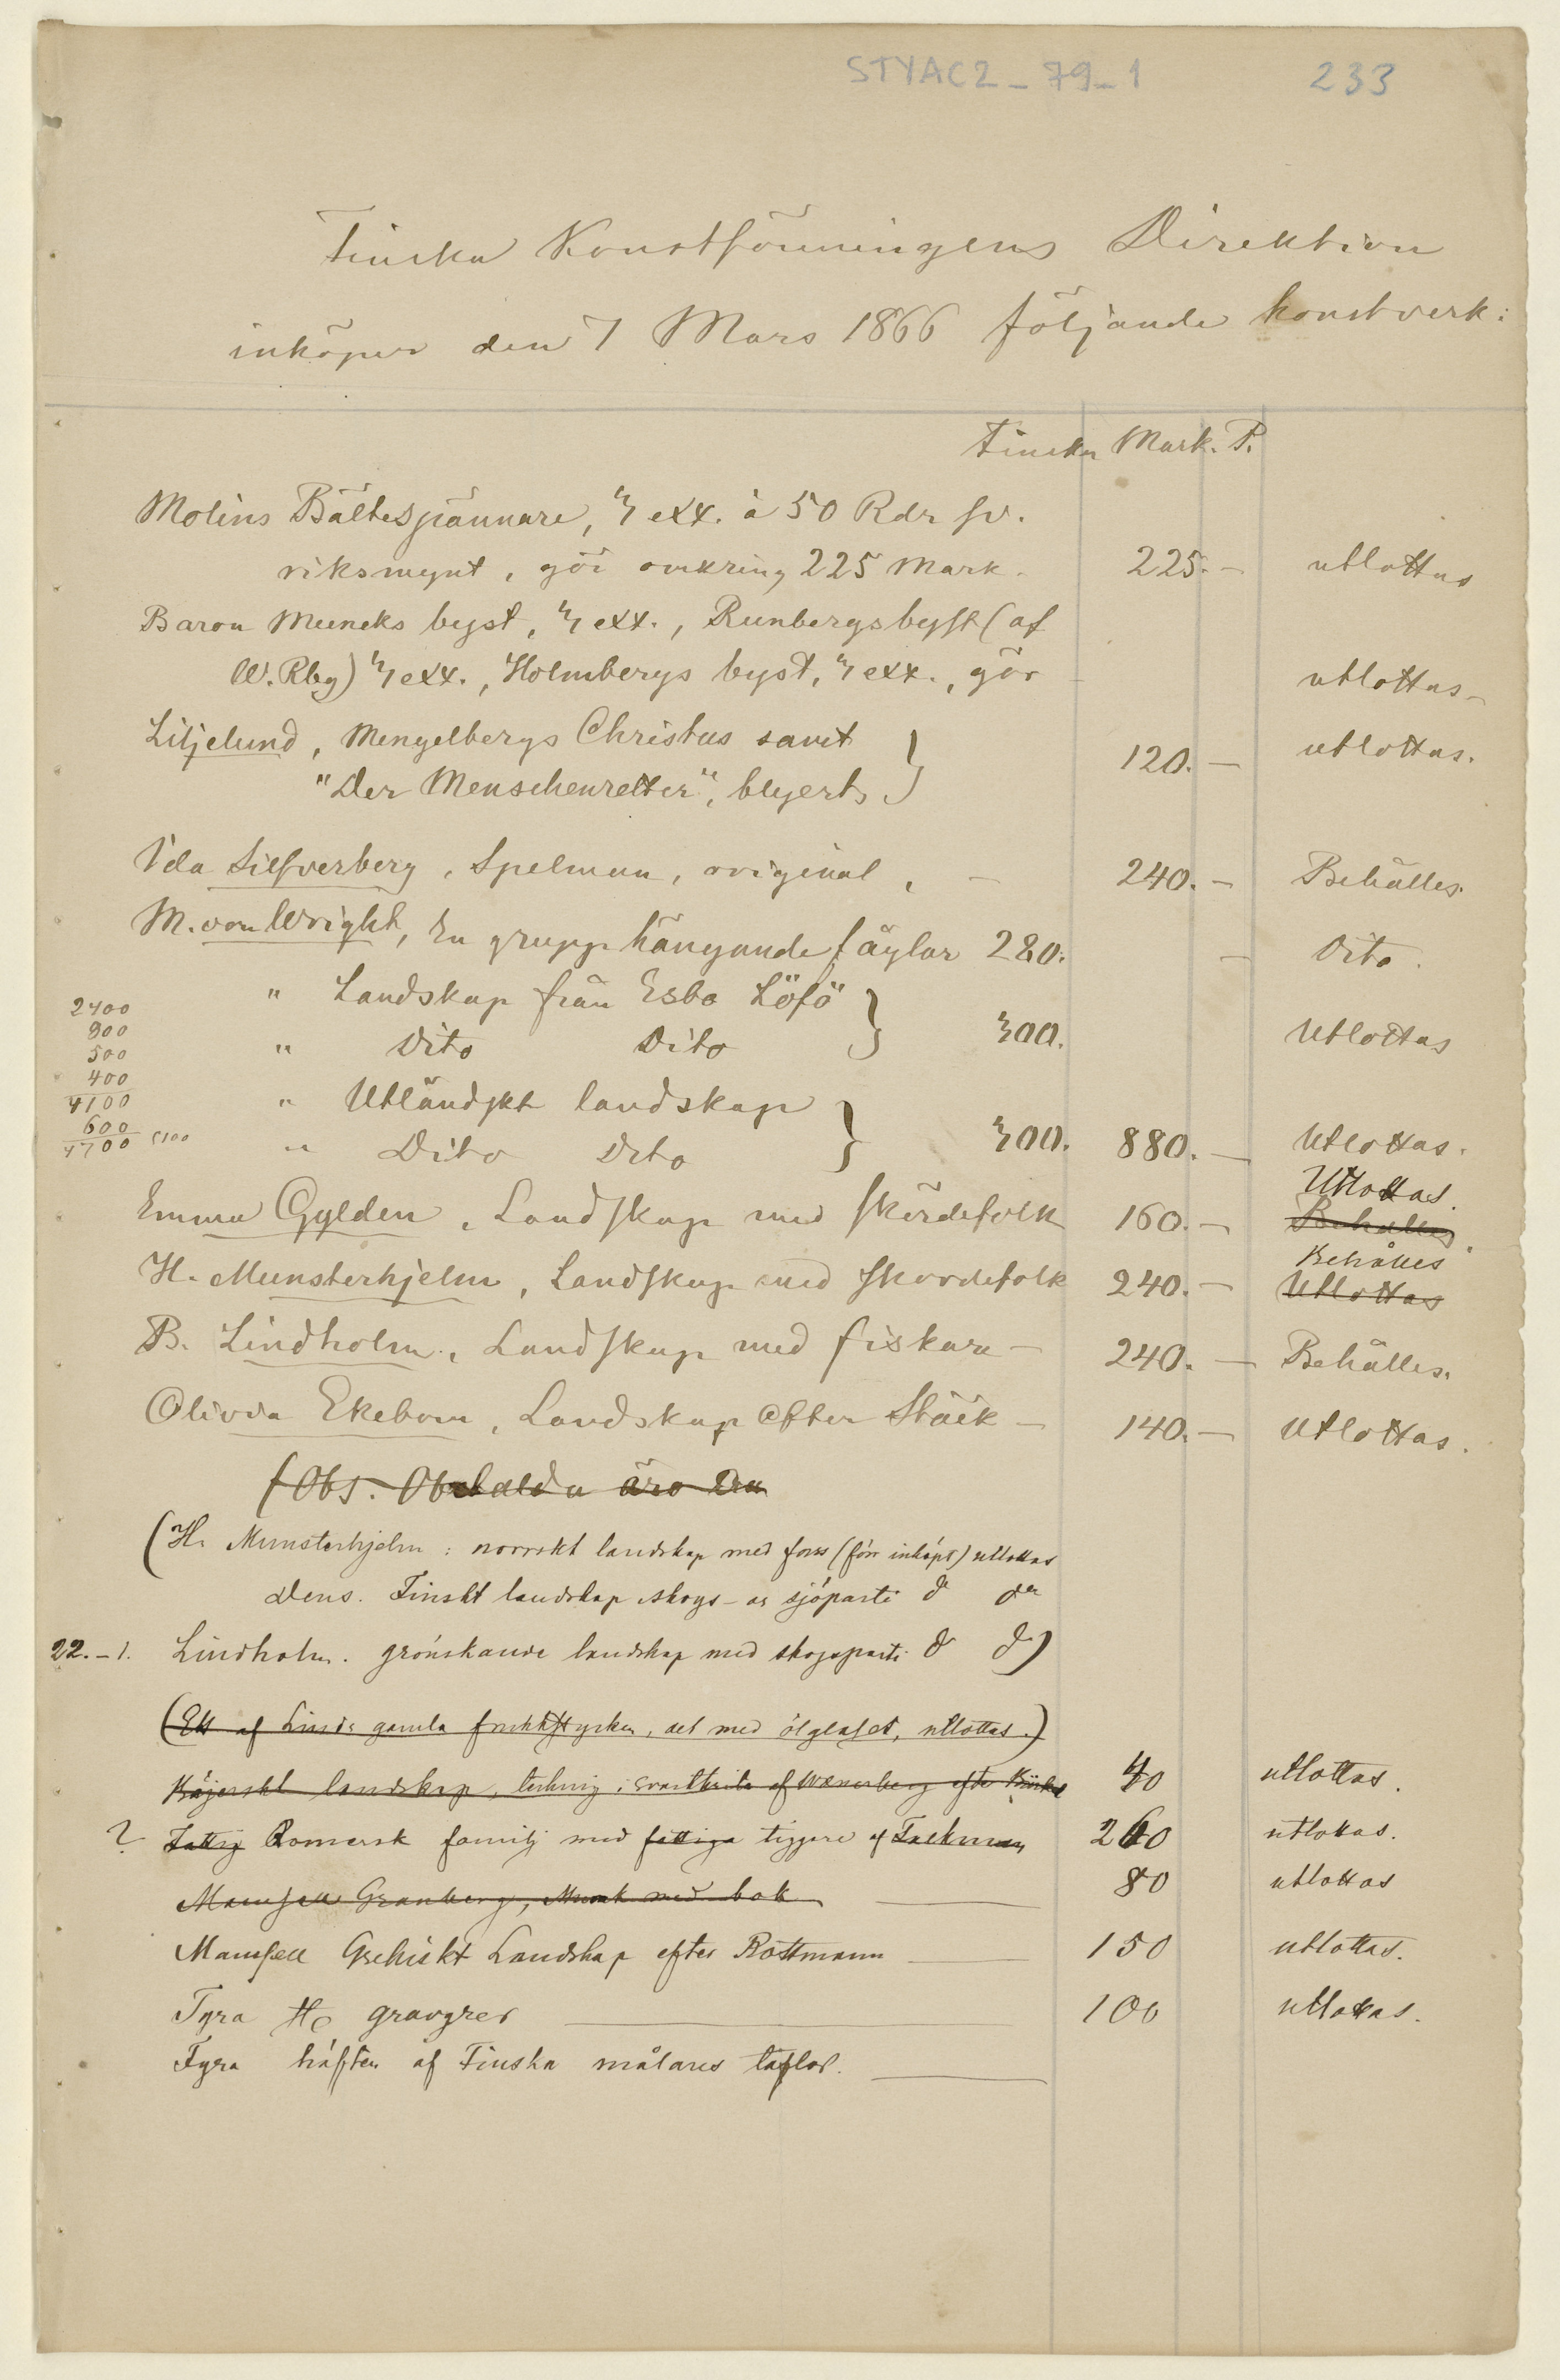 STYAC2_79_1 233
Finska Konstföreningens Direktion
inköper den 7 Mars 1866 följande konstverk:
Finska Mark. P.
Molins Bältespännare, 3 exx. à 50 Rdr sv.
riksmynt, gör omkring 225 Mark. 225.— utlottas
Baron Muncks byst, 3 exx., Runbergsbyst (af
W. Rbg) 3 exx., Holmbergs byst, 3 exx., gör — utlottas—
Liljelund, Mengelbergs Christus samt
"Der Menschenretter", blyerts } 120.— utlottas.
Ida Silfverberg, Spelman, original, — 240.— Behålles.
M. von Wright, En grupp hängande fåglar 280. — Dito.
" Landskap från Esbo Löfö
" Dito Dito } 300. Utlottas
2400
900
500
400
4100
600
4700 5100
" Utländskt landskap
" Dito Dito } 300. 880.— Utlottas.
Utlottas.
Emma Gylden, Landskap med skördefolk 160.— Behålles
Behålles
H. Munsterhjelm, Landskap med skördefolk 240.— Utlottas
B. Lindholm, Landskap med fiskare — 240.— Behålles.
Olivia Ekebom, Landskap efter Stäck — 140.— Utlottas.
(Obs. Obetalda äro
(H. Munsterhjelm: norrskt landskap med forss (förr inköpt) utlottas
Dens. Finskt landskap skogs- os sjöparti do do
22.–1. Lindholm. grönskande landskap med skogsparti do do)
(Ett af Linds gamla fruktstycken, det med ölglaset, utlottas.)
Bajerskt landskap, teckning i svartkrita af Wænerberg efter 40 utlottas.
? Fattig Romersk familj med fattiga tiggare af Falkman 260 utlottas.
Mamsell Granberg, Munk med bok 80 utlottas
Mamsell Grekiskt Landskap efter Rottmann — 150 utlottas.
Fyra gravyrer — 100 utlottas.
Fyra häften af Finska målares taflor. —